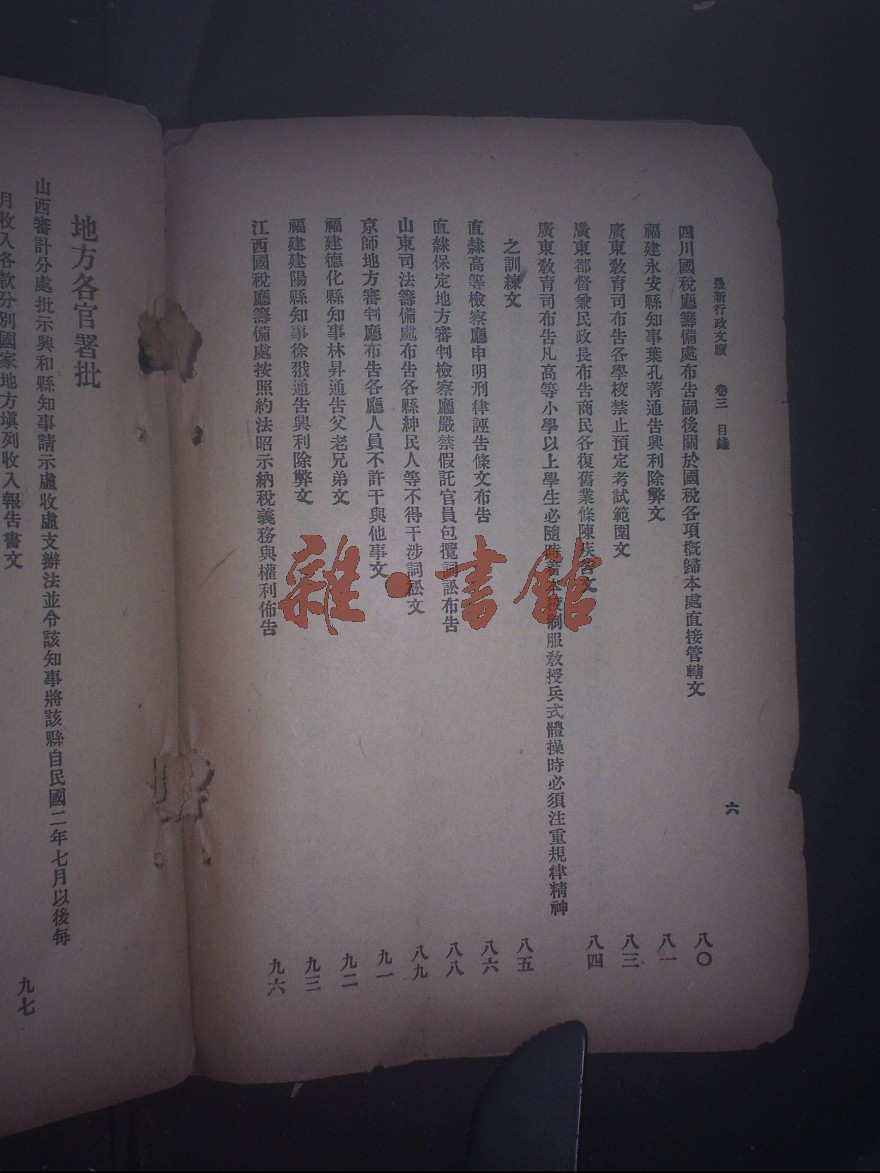 最新行政文牘 卷三 目錄 六
四川國稅廳籌備處布告嗣後關於國稅各項槪歸本處直接管轄文 八〇
福建永安縣知事葉孔菁通告興利除弊文 八一
廣東敎育司布告各學校禁止預定考試範圍文 八三
廣東都督兼民政長布告商民各復舊業條陳疾苦文 八四
廣東敎育司布告凡高等小學以上學生必隨時着本校制服敎授兵式體操時必須注重規律精神
之訓練文 八五
直隸高等檢察廳申明刑律誣告條文布告 八六
直隸保定地方審判檢察廳嚴禁假託官員包攬詞訟布告 八八
山東司法籌備處布告各縣紳民人等不得干涉詞訟文 八九
京師地方審判廳布告各廳人員不許干與他事文 九一
福建德化縣知事林昇通告父老兄弟文 九二
福建建陽縣知事徐戩通告興利除弊文 九三
江西國稅廳籌備處按照約法昭示納稅義務與權利佈告 九六
地方各官署批
山西審計分處批示興和縣知事請示虛收虛支辦法並令該知事將該縣自民國二年七月以後每
月收入各款分別國家地方塡列收入報告書文 九七
雜·書鋪